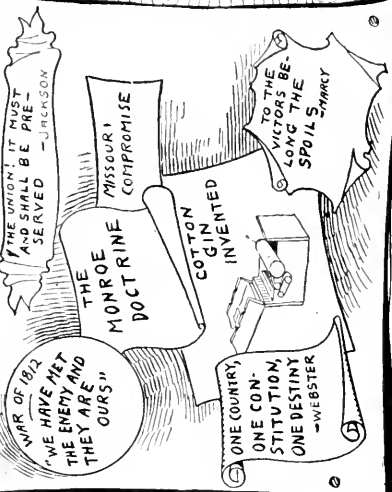 "THE UNION! IT MUST
AND SHALL BE PRE-
SERVED —JACKSON
MISSOURI
COMPROMISE
TO THE
VICTORS BE-
LONG THE
SPOILS—MARCY
THE
MONROE
DOCTRINE
COTTON
GIN
INVENTED
WAR OF 1812
"WE HAVE MET
THE ENEMY AND
THEY ARE
OURS"
ONE COUNTRY,
ONE CON-
STITUTION,
ONE DESTINY
—WEBSTER